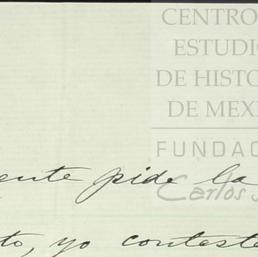 CENTRO
ESTUDIO
DE HISTO
DE MEXI
FUNDAC
Carlos S
ente pide la
to, yo conteste